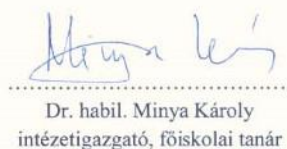 Minya Ká
Dr. habil. Minya Károly
intézetigazgató, főiskolai tanár